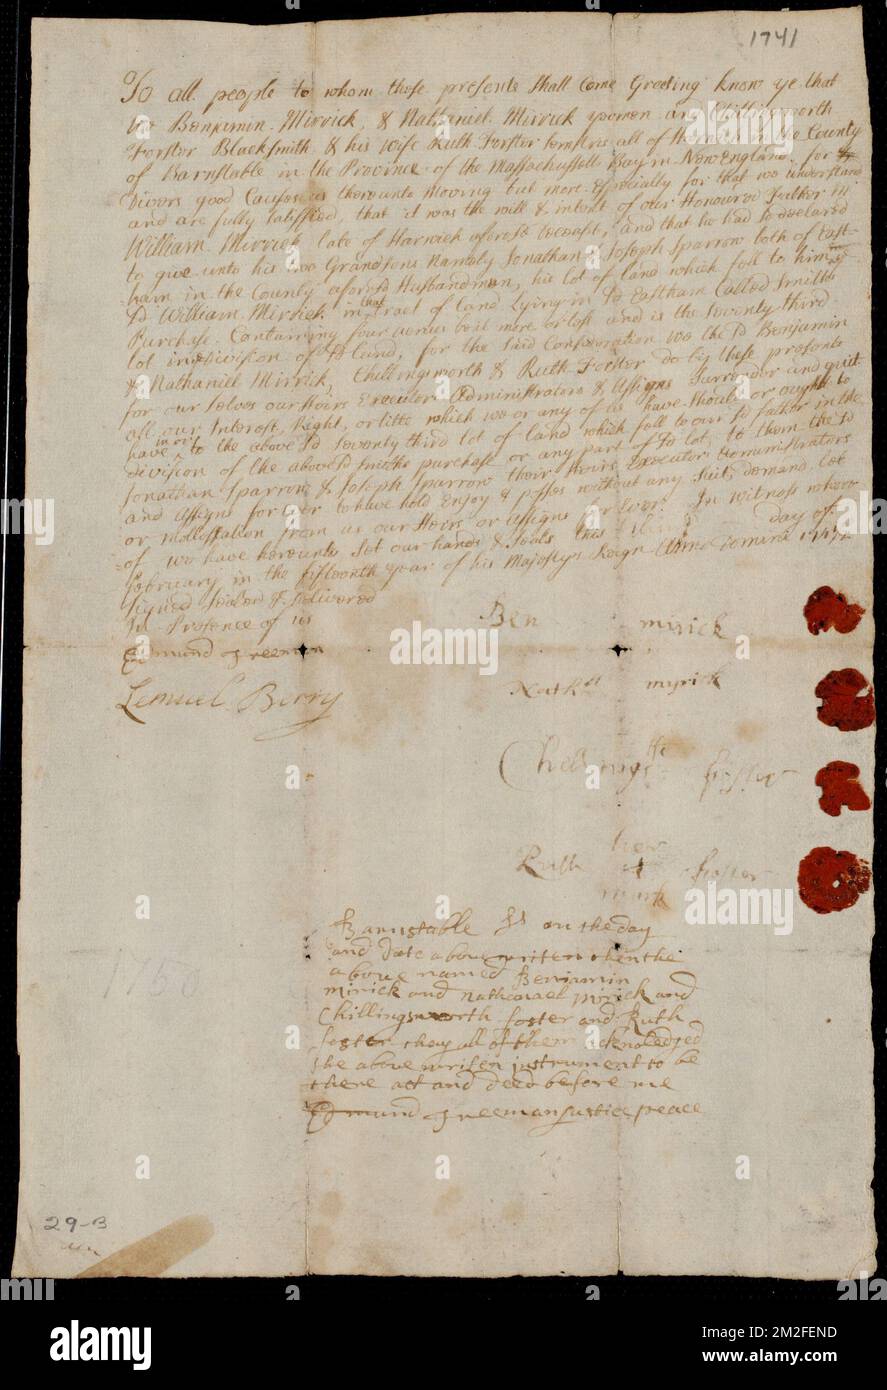 1741
To all people to whom these presents Shall Come Greeting know ye that
we Benjamin Mirrick, & Nathaniel Mirrick yeomen and Chillingsworth
Forster Blacksmith & his wife Ruth Forster all of Harwich in the County
of Barnstable in the Province of the Massachusetts Bay in New England. for
Divers good Causes us thereunto moving but more especially for that we understand
and are fully satisfied, that it was the will & intent of our Honoured Father Mr
William Mirrick late of Harwich aforesd and that he had so declared
to give unto his two Grandsons Namely Jonathan & Joseph Sparrow both of East-
ham in the County aforesd Husbandman, his lot of land which fell to him ye
sd William Mirrick in that tract of land Lying in sd Eastham Called Smiths
Purchase. Containing four acres be it more or less and is the Seventy third
lot in ye division of sd land, for the said Consideration we the sd Benjamin
& Nathaniel Mirrick, Chillingsworth & Ruth Forster do by these presents
for our Selves our Heirs Executors Administrators & Assigns Surrender and quit
all our Interest, Right, or title which we or any of us have Should or ought to
have in or to the above sd Seventy third lot of land which fell to our sd father in the
division of the above sd Smiths purchase or any part of sd lot, to them the sd
Jonathan Sparrow & Joseph Sparrow their Heirs Executors Administrators
and Assigns for ever to have hold Enjoy & posses without any Suit, demand let
or mollestation from us our Heirs or assigns for Ever. In witness where
of we have hereunto Set our hands & Seals this day of
February in the fifteenth year of his Majestys Reign Anno Domini
Signed Sealed & Delivered
In Presence of us
Edmund freeman
Lemuel Berry
Ben mirick
Nathll myrick
Chillingsth foster
her
Ruth foster
mark
Barnstable Ss on the day
and Date above writen then the
above named Benjamin
mirick and nathanael mirick and
Chillingsworth foster and Ruth
foster thay all of them acknoledged
the above writen instrument to be
there act and deed before me
Edmund freeman Justice peace
1750
29-B
alamy
alamy
Image ID: 2M2FEND
www.alamy.com